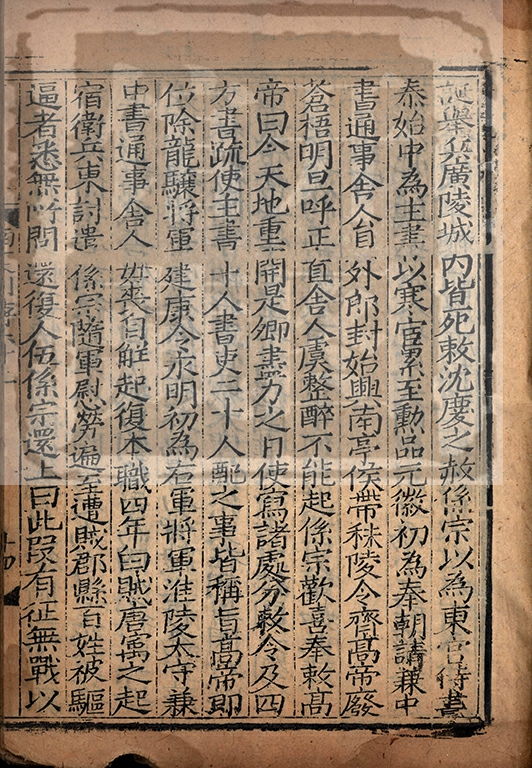 誕舉兵廣陵城内皆死敕沈慶之赦係宗以為東宫侍書
泰始中為主書以寒官累至勳品元徽初為奉朝請兼中
書通事舍人員外郎封始興南亭侯帶秣陵令齊髙帝廢
蒼梧明旦呼正直舍人虞整醉不能起係宗歡喜奉敕髙
帝曰今天地重開是卿盡力之日使寫諸處分敕令及四
方書疏使主書十人書吏二十人配之事皆稱旨髙帝即
位除龍驤將軍建康令永明初為右軍將軍淮陵太守兼
中書通事舍人母喪自解起復本職四年白賊唐㝢之起
宿衛兵東討遣係宗隨軍慰勞遍至遭賊郡縣百姓被驅
逼者悉無所問還復人伍係宗還上曰此段有征無戰以